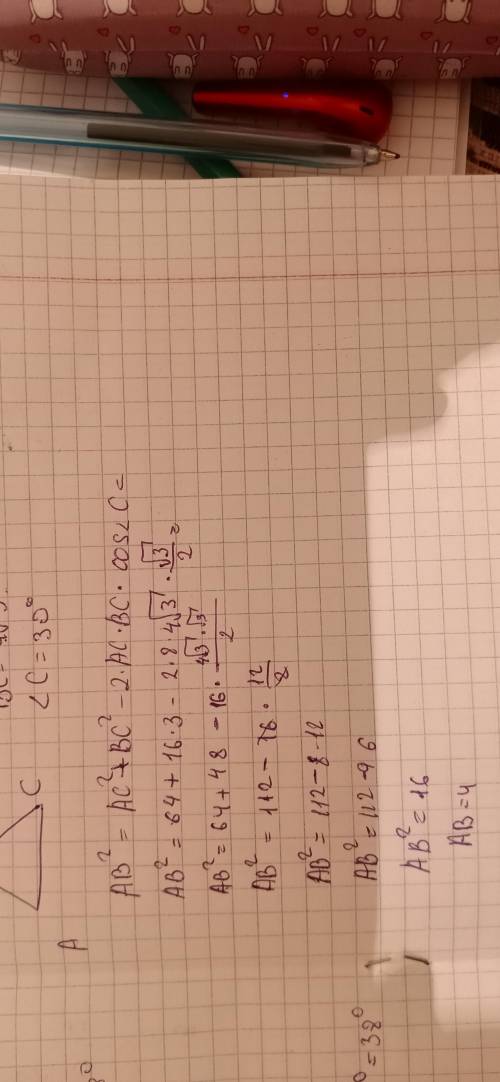 ∠C = 30°
C
A
AB² = AC² + BC² - 2·AC·BC·cos∠C =
AB² = 64 + 16·3 - 2·8·4√3 · √3/2 =
AB² = 64 + 48 - 16 · 4√3·√3/2
AB² = 112 - 16 · 12/2
AB² = 112 - 8·12
AB² = 112 - 96
AB² = 16
AB = 4
= 38°